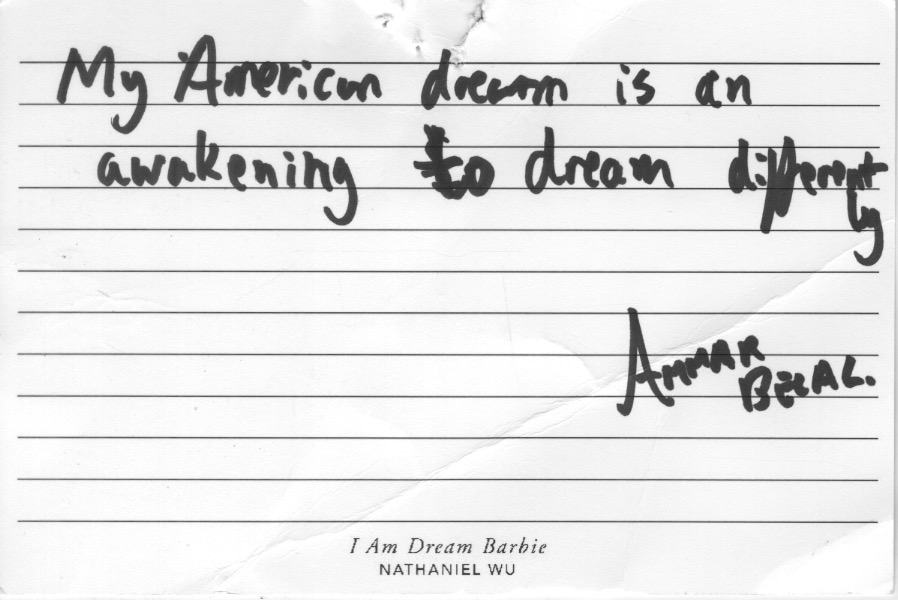 My American dream is an
awakening to dream different
ly
AMMAR
BELAL.
I Am Dream Barbie
NATHANIEL WU